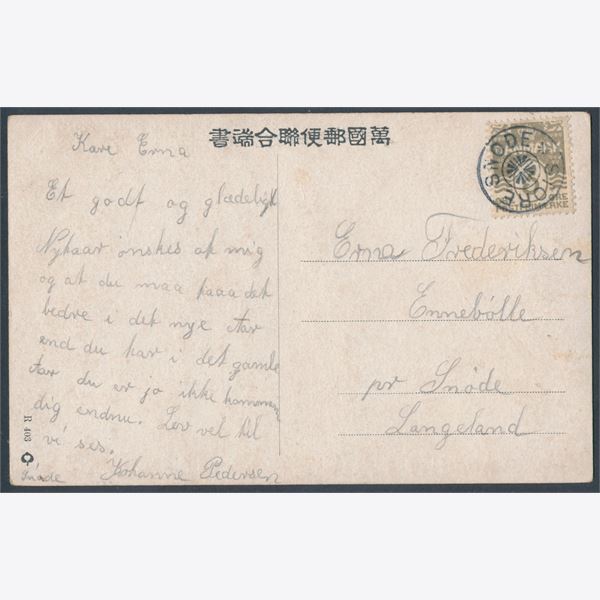 書端合聯便郵國萬
Kære Erna
Et godt og glædeligt
Nytaar ønskes af mig
og at du maa faaa det
bedre i det nye Aar
end du har i det gamle
Aar du er jo ikke kommen
dig endnu. Lev vel til
vi ses.
Snøde Johanne Pedersen
R 403
SNØDE
ØRE
MÆRKE
Erna Frederiksen
Ennebølle
pr Snøde
Langeland